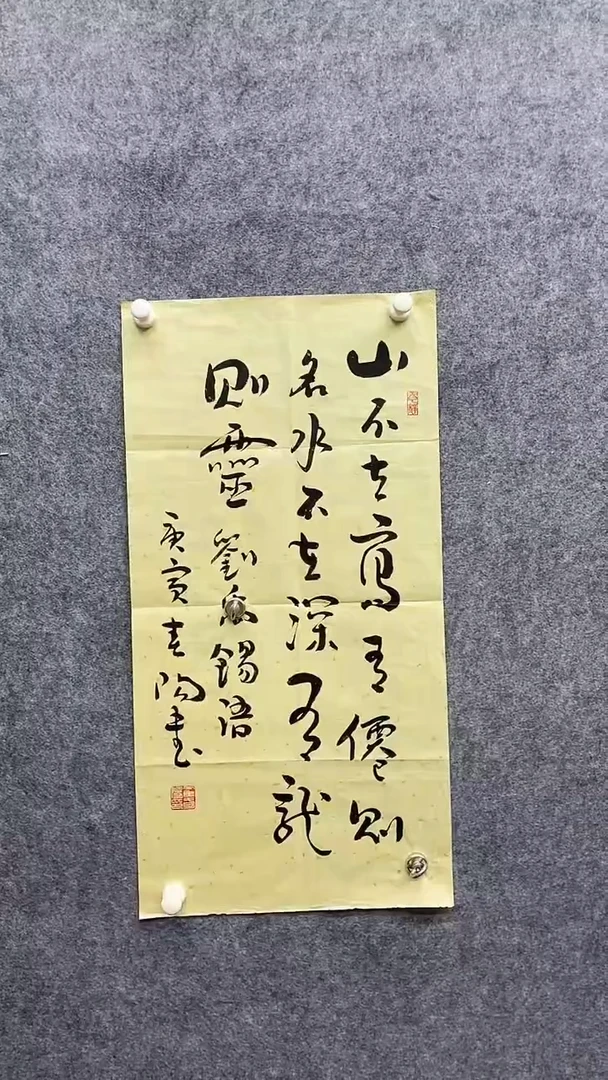 山不在高有僊則
名水不在深有龍
則靈劉禹錫語
庚寅去陽書